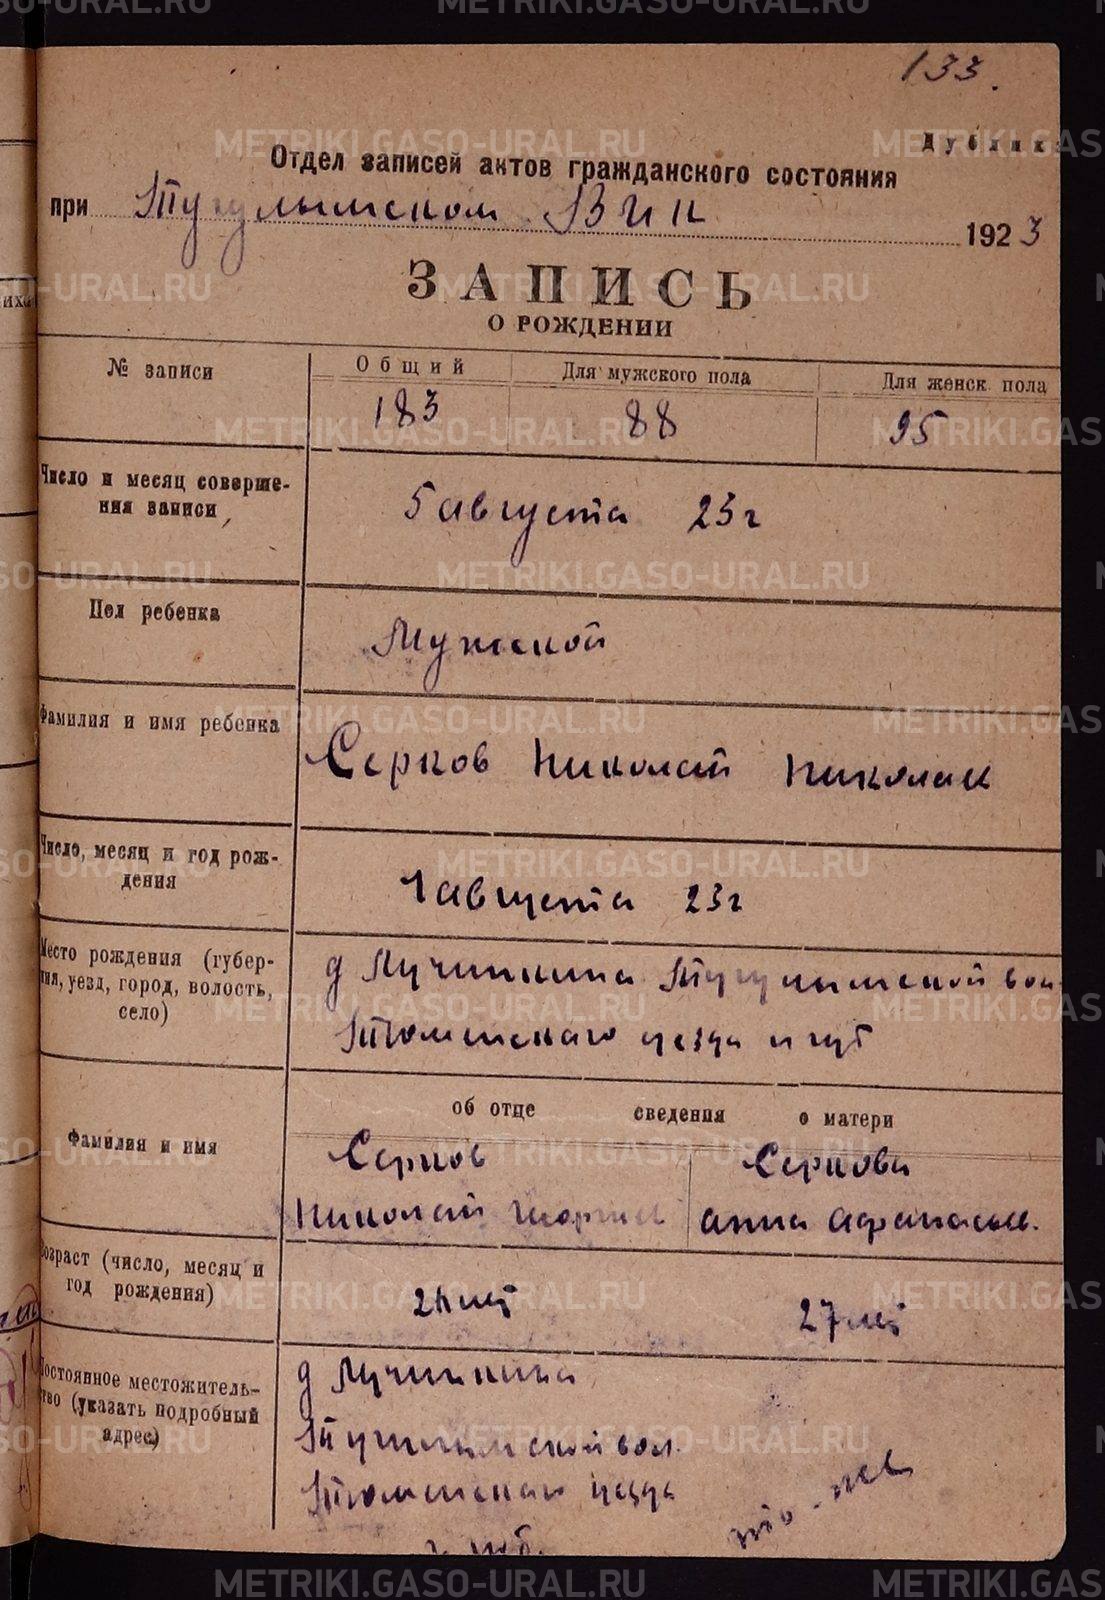 133.
Дублика
Отдел записей актов гражданского состояния
при Тугулымском ВИК 1923
ЗАПИСЬ
О РОЖДЕНИИ
№ записи
Общий
Для мужского пола
Для женск. пола
183
88
95
Число и месяц соверше-
ния записи
5 августа 23 г
Пол ребенка
Мужской
Фамилия и имя ребенка
Серков Николай Николаи
Число, месяц и год рож-
дения
1 августа 23 г
Место рождения (губер-
ния, уезд, город, волость,
село)
д Лучинкина Тугулымской вол
Тюменскаго уезда и губ
об отце сведения о матери
Фамилия и имя
Серков
Николай Георгиев
Серкова
Анна Афанасьев.
Возраст (число, месяц и
год рождения)
27 лет
Постоянное местожитель-
ство (указать подробный
адрес)
д Лучинкина
Тугулымской вол.
Тюменскаго уезда
и губ.
то-же
METRIKI.GASO-URAL.RU